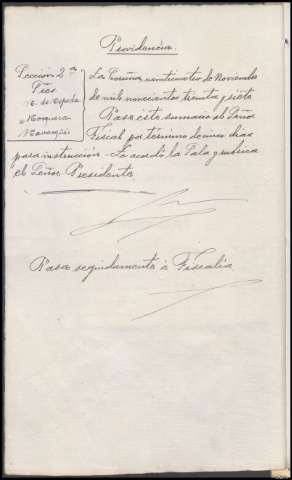 Providencia.
Sección 2ª
Sres
Mosquera
La Coruña veinticuatro de Noviembre
de mil novecientos treinta y siete
Pase este sumario al Señor
Fiscal por término de diez dias
para instrucción.- Lo acordó la Sala y rubrica
el Señor Presidente
Pasa seguidamente á Fiscalia